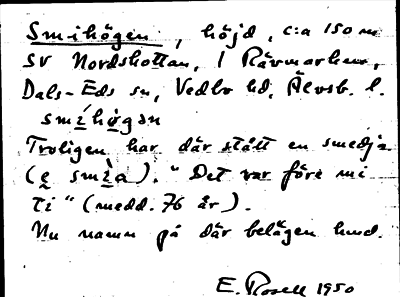 Smihögen, höjd, c:a 150 m
SV Nordskottan, i Rävmarken,
Dals-Eds sn, Vedbo hd, Älvsb. l.
smi̇́hø̀gən
Troligen har där stått en smedja
(e smi̇̀a). "Det var före mi
ti" (medd. 76 år).
Nu namn på där belägen lund.
E. Rosell 1950